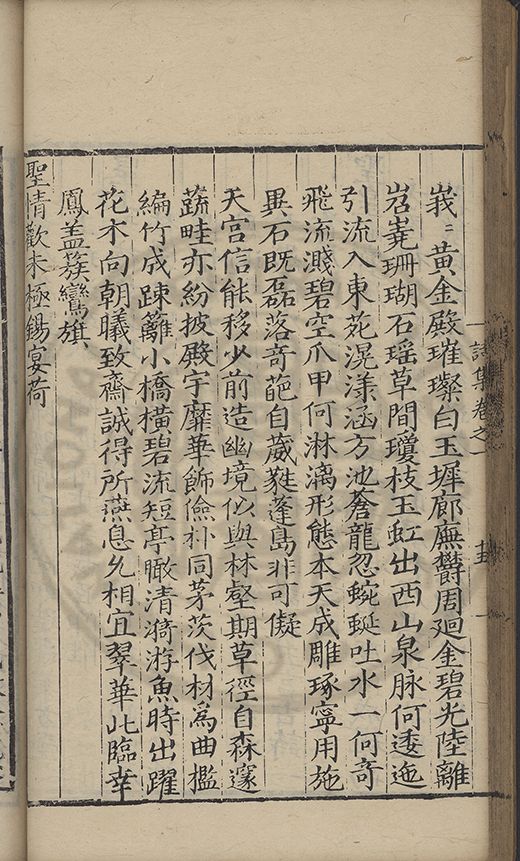 詩集卷之一
峩〻黃金殿璀璨白玉墀廊廡欝周廻金碧光陸離
岧嶤珊瑚石瑶草間瓊枝玉虹出西山泉脉何逶迤
引流入東苑滉漾涵方池蒼龍忽蜿蜒吐水一何奇
飛流濺碧空爪甲何淋漓形態本天成雕琢寧用施
異石既磊落奇葩自葳蕤蓬島非可儗
天宫信能移少前造幽境似與林壑期草徑自森邃
蔬畦亦紛披殿宇靡華飾儉朴同茅茨伐材爲曲檻
編竹成踈籬小橋横碧流短亭瞰清漪游魚時出躍
花木向朝曦致齋誠得所燕息允相宜翠華此臨幸
鳳盖簇鸞旗
聖情歡未極錫宴荷